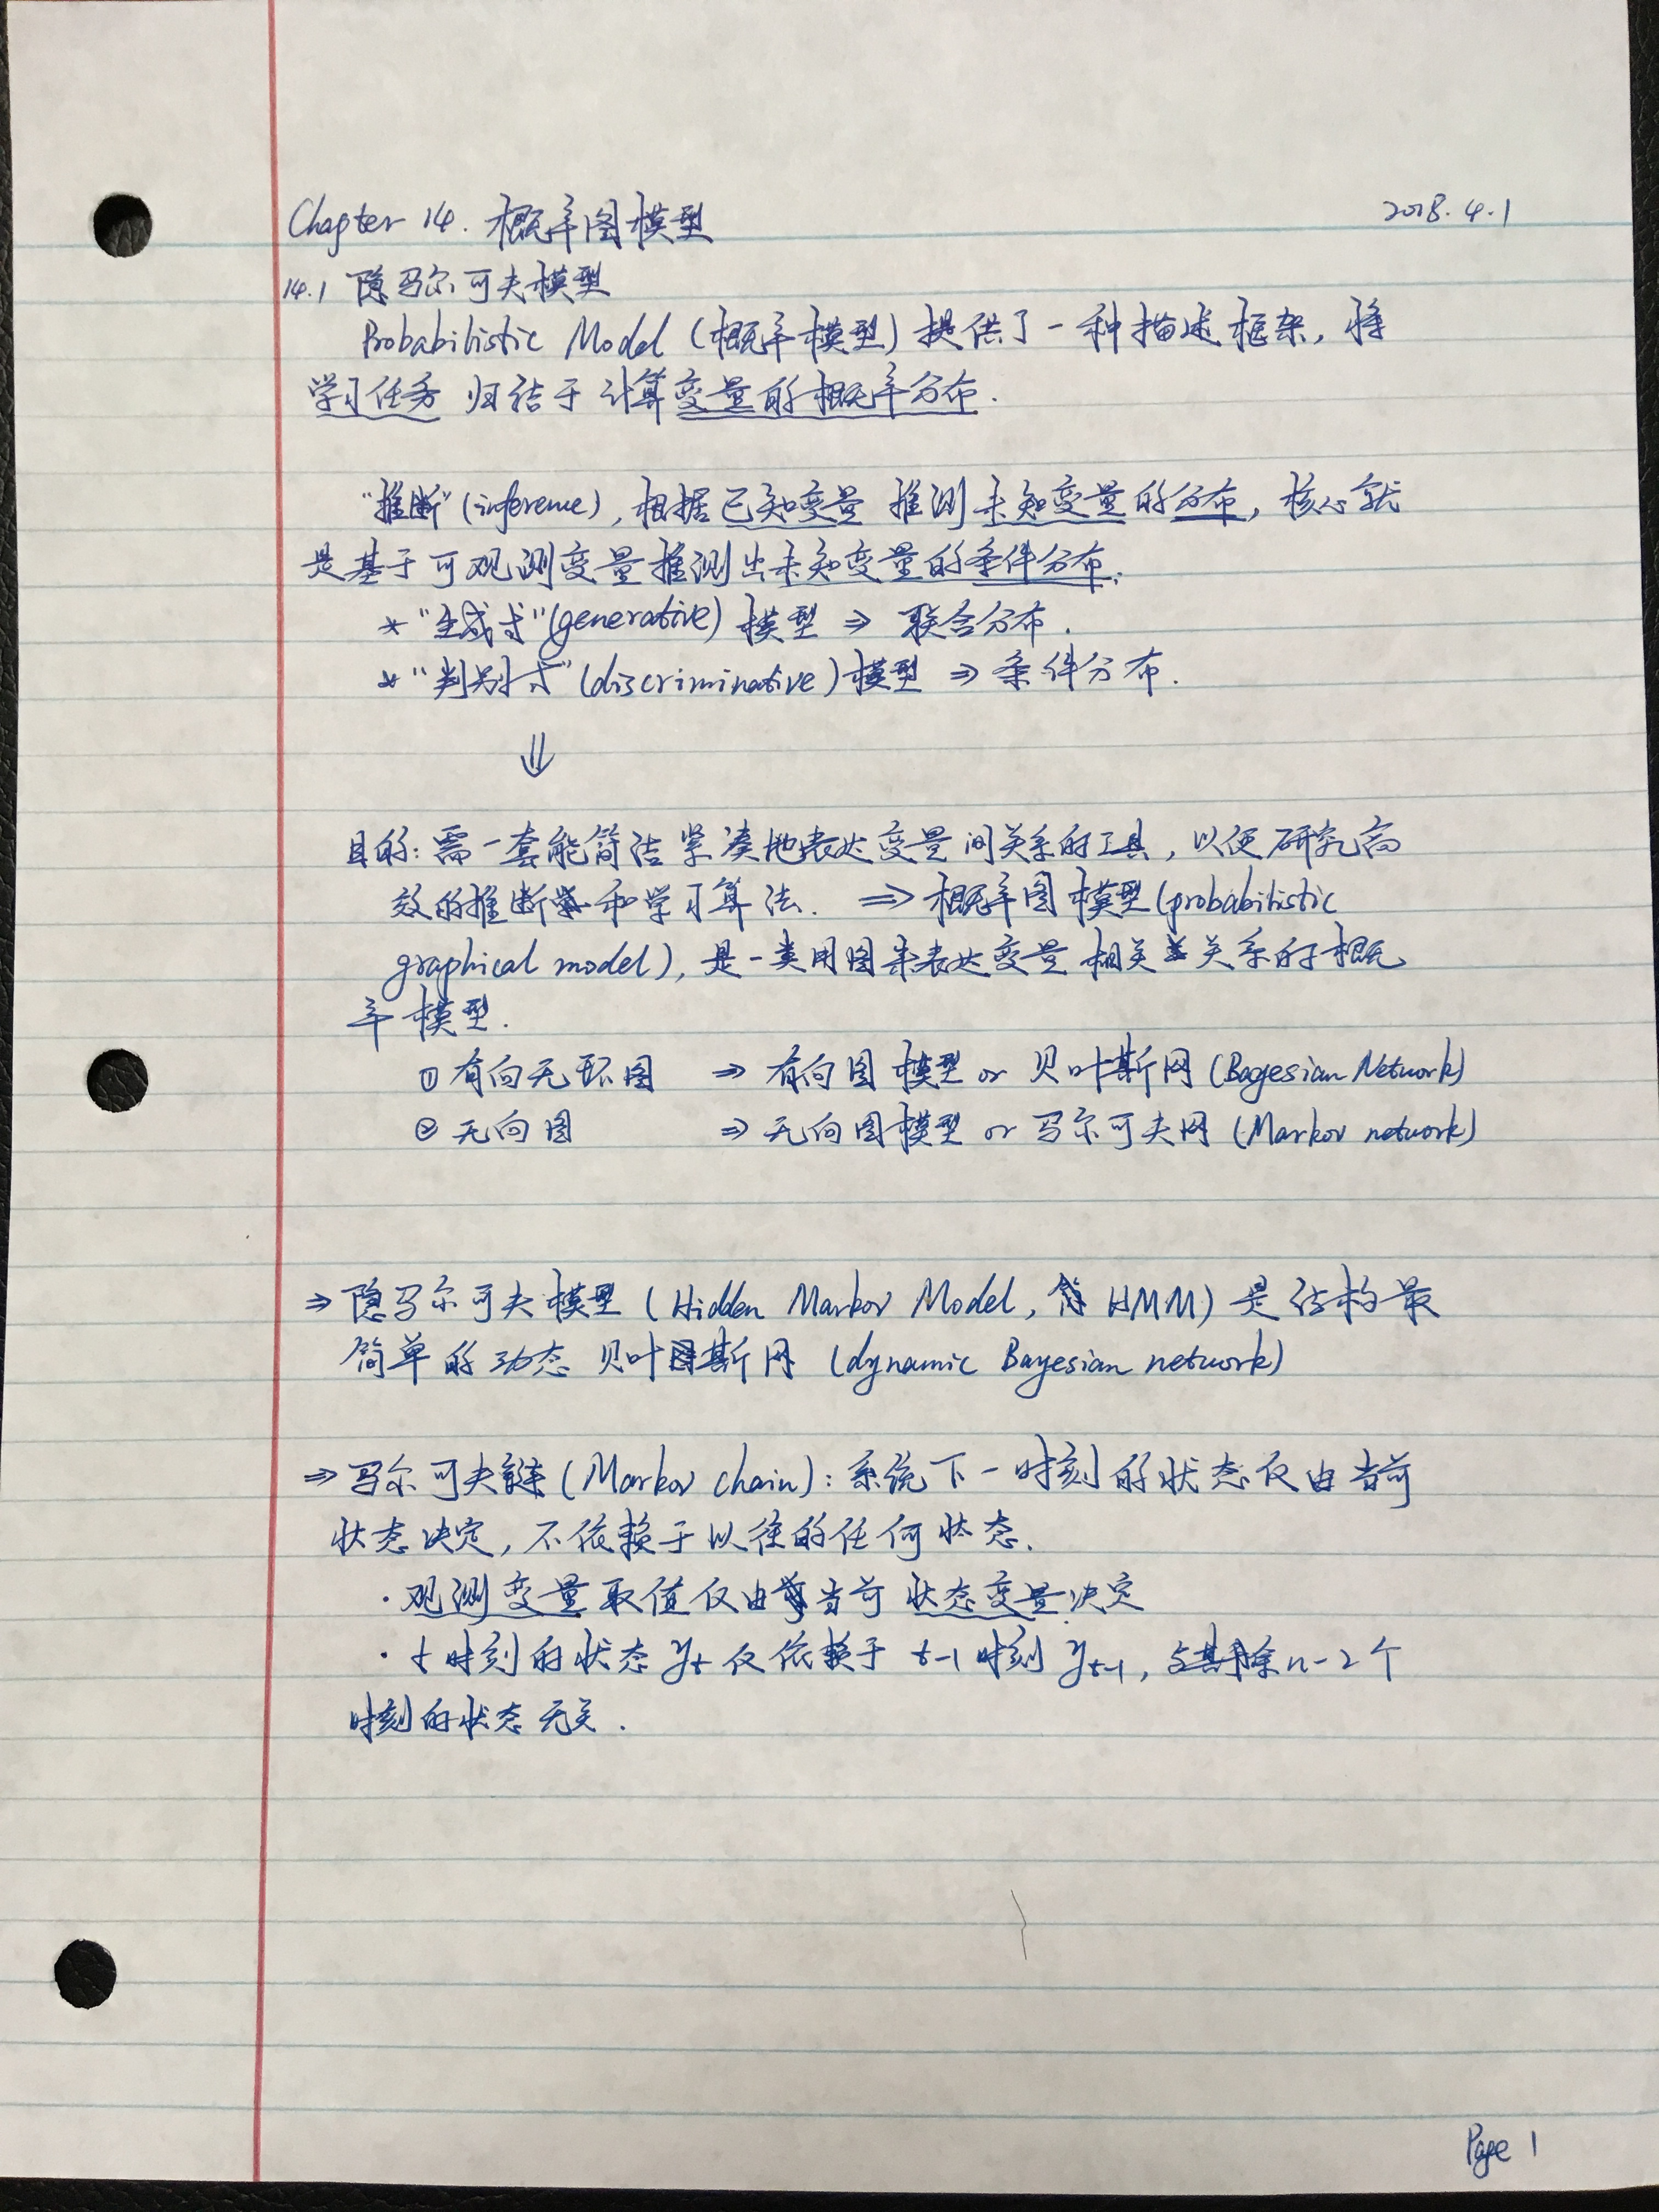 Chapter 14. 概率图模型
2018.4.1
14.1 隐马尔可夫模型
Probabilistic Model (概率模型) 提供了一种描述框架, 将
学习任务 归结于 计算变量的概率分布.
"推断" (inference), 根据已知变量 推测 未知变量的分布, 核心就
是基于可观测变量推测出未知变量的条件分布.
* "生成式" (generative) 模型 ⇒ 联合分布.
* "判别式" (discriminative) 模型 ⇒ 条件分布.
⇓
目的: 需一套能简洁紧凑地表达变量间关系的工具, 以便研究高
效的推断和学习算法. ⇒ 概率图模型 (probabilistic
graphical model), 是一类用图来表达变量相关关系的概
率模型.
① 有向无环图 ⇒ 有向图模型 or 贝叶斯网 (Bayesian Network)
② 无向图 ⇒ 无向图模型 or 马尔可夫网 (Markov network)
⇒ 隐马尔可夫模型 (Hidden Markov Model, 简 HMM) 是结构最
简单的动态贝叶斯网 (dynamic Bayesian network)
⇒ 马尔可夫链 (Markov chain): 系统下一时刻的状态仅由当前
状态决定, 不依赖于以往的任何状态.
· 观测变量取值仅由当前状态变量决定
· t时刻的状态 yt 仅依赖于 t-1 时刻 yt-1, 与其余 n-2 个
时刻的状态无关.
Page 1